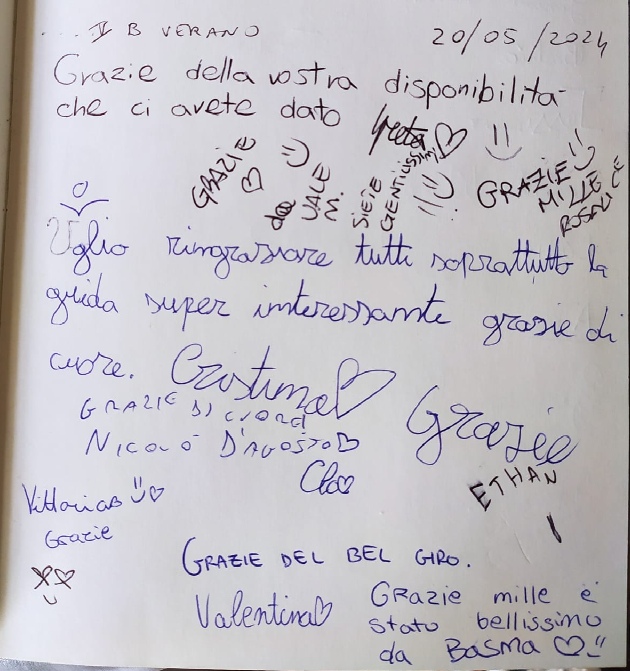 ... II B VERANO
20/05/2024
Grazie della vostra disponibilità
che ci avete dato
Greta
GRAZIE
da VALE M.
SIETE GENTILISSIMI
GRAZIE
MILLE
ROSALICE
Voglio ringraziare tutti soprattutto la
guida super interessante grazie di
cuore. Cristina
GRAZIE DI CUORE
NICOLÒ D'AGOSTO
Grazie
Clo
ETHAN
Vittoria
Grazie
GRAZIE DEL BEL GIRO.
Valentina
GRazie mille è
stato bellissimo
da Basma